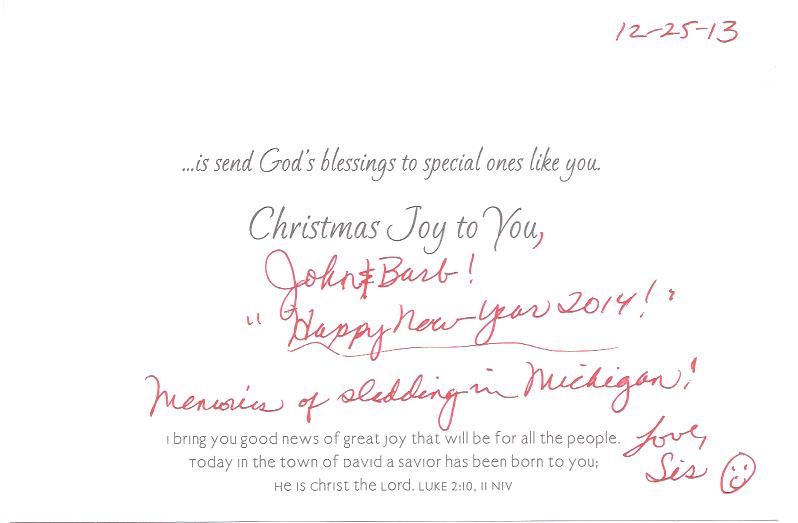 12-25-13
...is send God's blessings to special ones like you.
Christmas Joy to You,
John & Barb!
"Happy New Year 2014!"
Memories of sledding in Michigan!
I bring you good news of great joy that will be for all the people.
Today in the town of David a savior has been born to you;
He is Christ the Lord. LUKE 2:10, 11 NIV
Love,
Sis